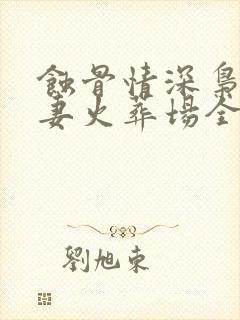 蝕骨情深梟
妻火葬場全
劉旭東